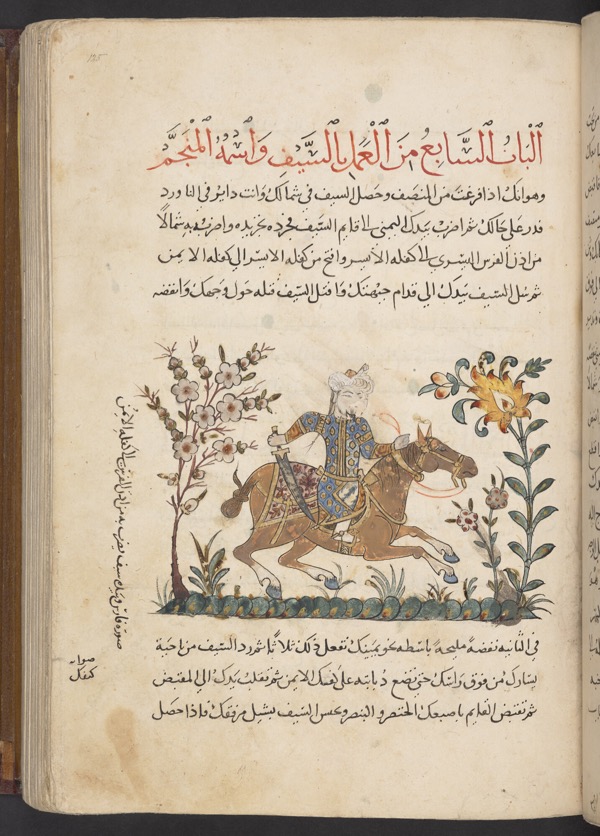 الباب السابع من العمل بالسيف واسمه المنجم
وهو انك اذا فرغت من المنصف وحصل السيف في شمالك وانت داير في الناورد
فدر على حالك ثم اضرب بيدك اليمنى الى قايم السيف فجرده بجريده واضرب به شمالا
من اذن الفرس اليسرى الى كفله الايسر وافتح من كفله الايسر الى كفله الايمن
ثم سل السيف بيدك الى قدام جبهتك وافتل السيف فتله حول وجهك وانفضه
صورة فارس وبيده سيف يضرب به من اذن الفرس الى كفله الايمن
في الثانيه نفضة مليحة باسطه نحو يمينك تفعل ذلك ثلاثا ثم رد السيف من ناحية
صوابه
كفل
يسارك من فوق راسك حتى تضع ذبابته على كفك الايمن ثم تقلب يدك الى المقبض
ثم تقبض القايم باصبعك الخنصر والبنصر وعس السيف بشيل مرفقك فاذا حصل